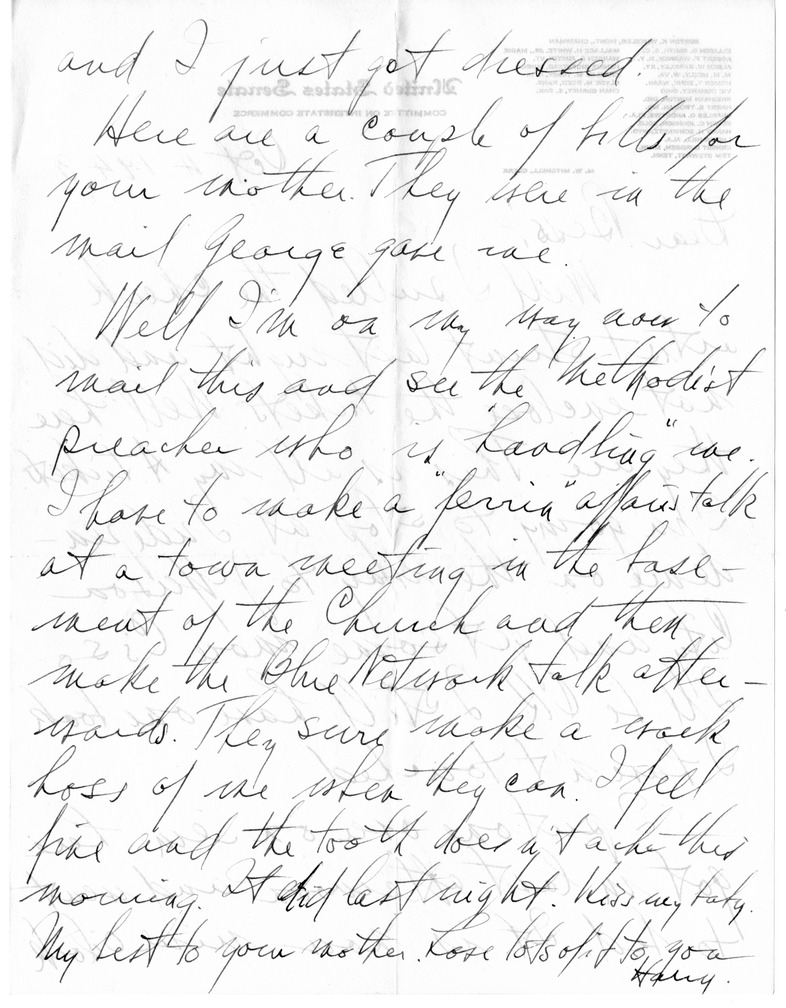 and I just got dressed.
Here are a couple of bills for
your mother. They were in the
mail George gave me.
Well I'm on my way now to
mail this and see the Methodist
preacher who is "handling" me.
I have to make a "ferrin" affairs talk
at a town meeting in the base-
ment of the Church and then
make the Blue Network talk after-
wards. They sure make a work
hoss of me when they can. I feel
fine and the tooth doesn't ache this
morning. It did last night. Kiss my baby.
My best to your mother. Love lots of it to you
Harry.